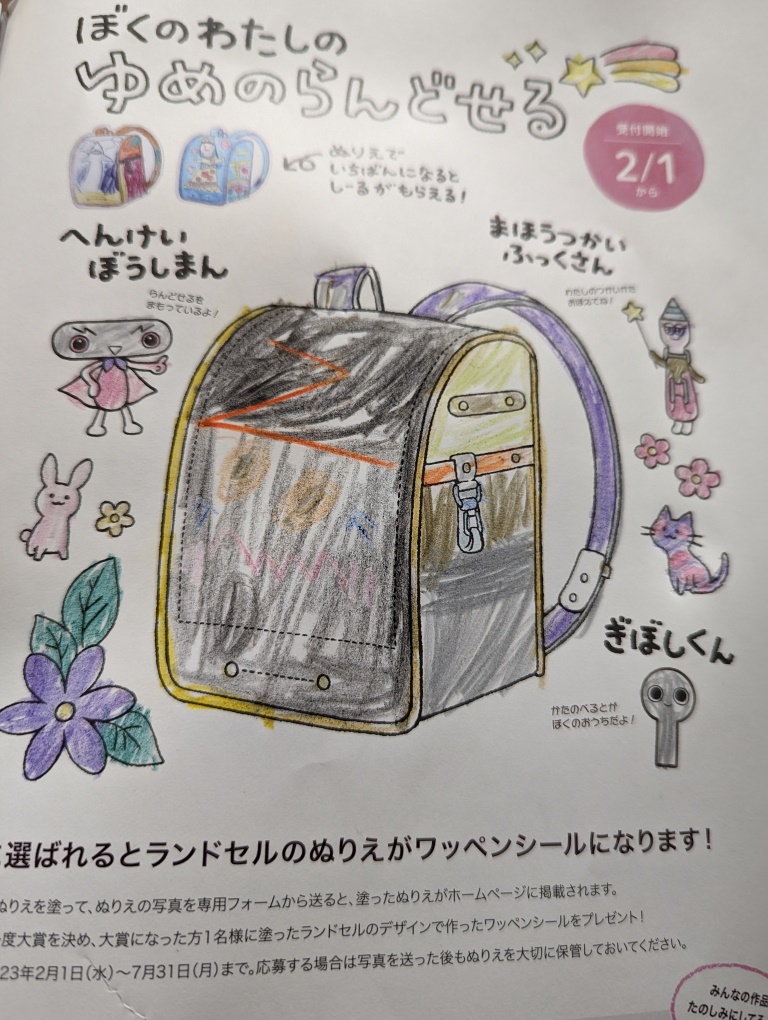 ぼくのわたしの
ゆめのらんどせる
受付開始
2/1
から
ぬりえで
いちばんになると
しーるがもらえる!
へんけい
ぼうしまん
らんどせるを
まもっているよ!
まほうつかい
ふっくさん
ぎぼしくん
かたのべるとが
ぼくのおうちだよ!
選ばれるとランドセルのぬりえがワッペンシールになります!
ぬりえを塗って、ぬりえの写真を専用フォームから送ると、塗ったぬりえがホームページに掲載されます。
度大賞を決め、大賞になった方1名様に塗ったランドセルのデザインで作ったワッペンシールをプレゼント!
23年2月1日(水)〜7月31日(月)まで。応募する場合は写真を送った後もぬりえを大切に保管しておいてください。
みんなの作品
たのしみにしてる